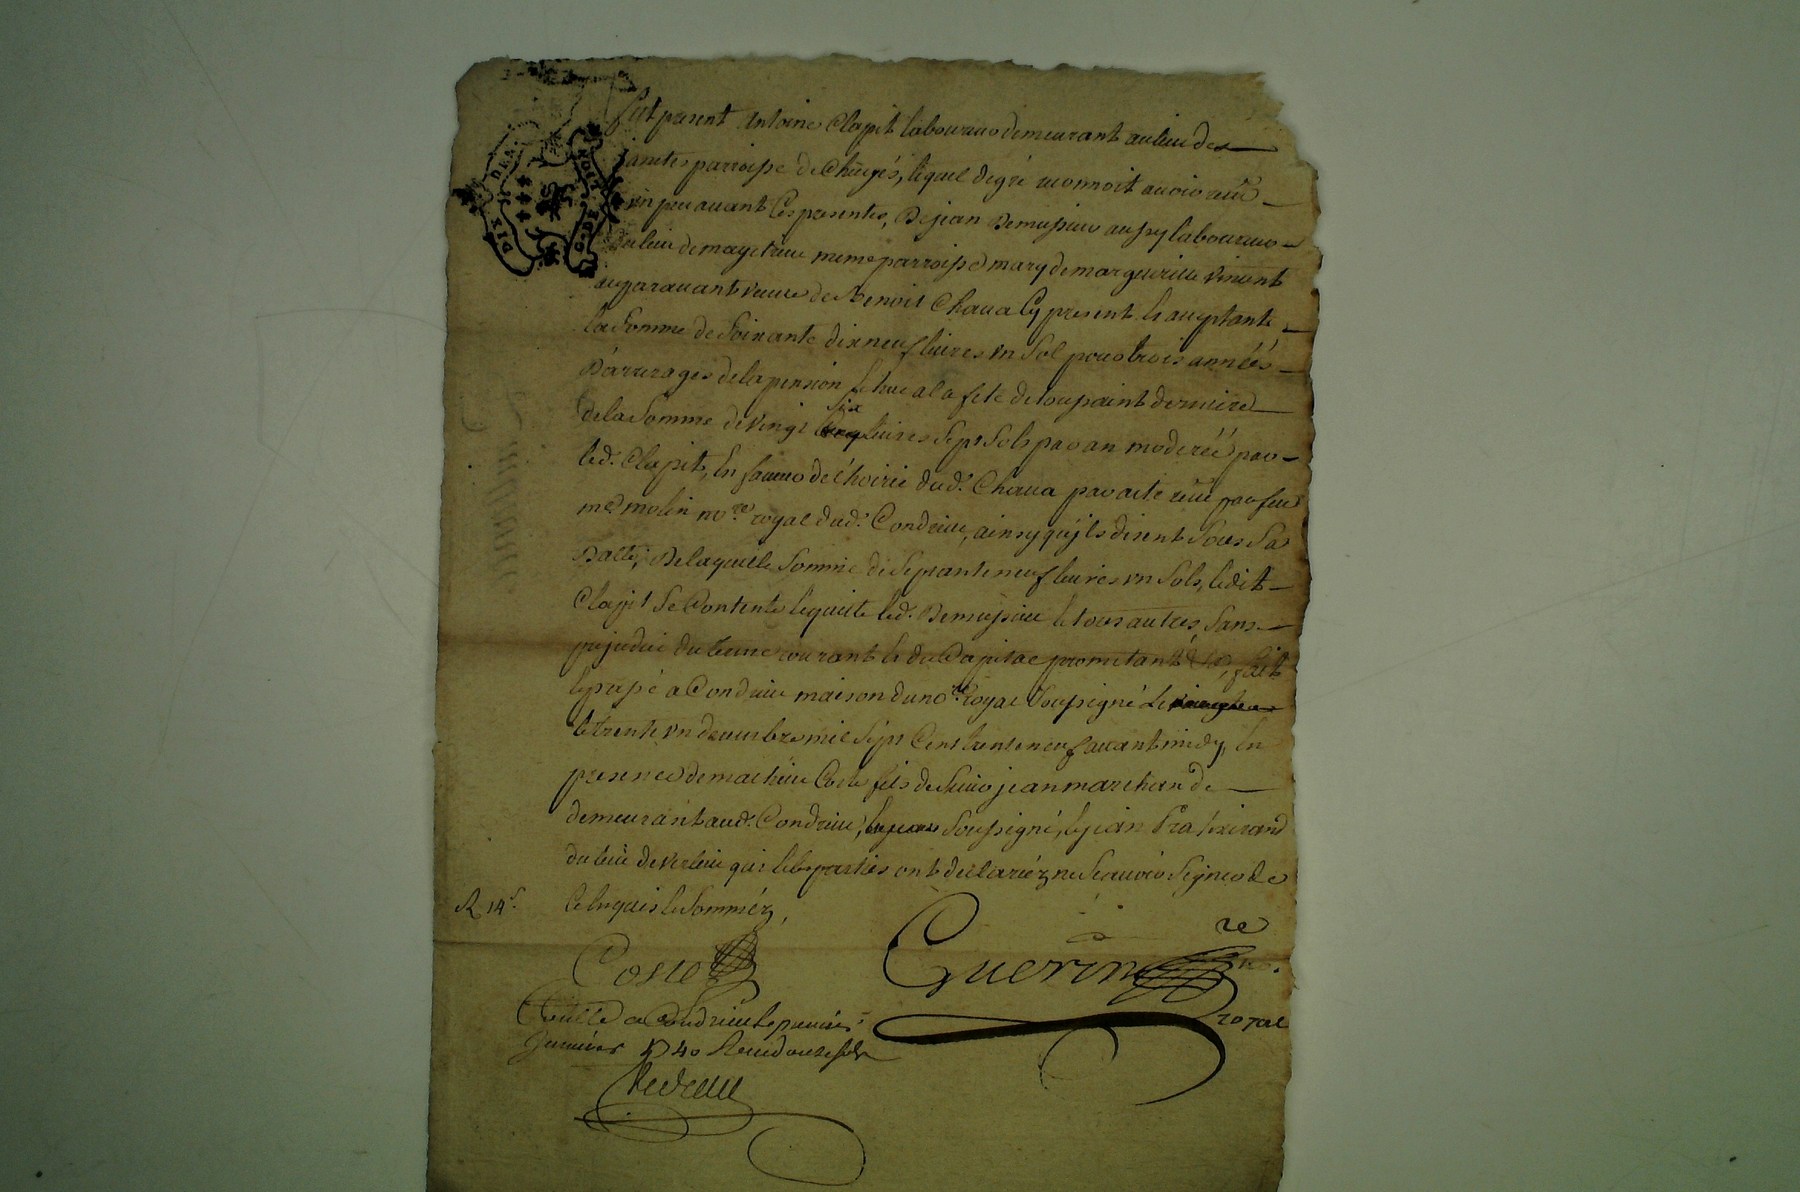 DIX DEN. G. DE
fut present Antoine Clapit laboureur demeurant au lieu des
parroisse de Chuyés, lequel de gré reconnoit avoir reçu
un peu avant Ces presentes, De jean Demussieu aussy laboureur
du lieu de meme parroisse mary de margueritte vincent
auparavant veuve de Benoit Chava Cy present & acceptant
la Somme de Soixante dixneuf livres un Sol pour trois années
D'arrerages de la pension echue a la fete de toussaint derniere
de la Somme de vingt six livres Sept Sols par an moderéé par
led. Clapit, En faveur de l'hoirie dud. Chava par acte reçu par feu
me. molin nore. royal dud. Condrieu, ainsy qu'ils disent Sous Sa
Datte, De laquelle Somme de Septante neuf livres un Sols, ledit
Clapit Se Contente & quitte led. Demussieu & tous autres, Sans
prejudice du terme courant & du Capital promettant &c, fait
& passé a Condrieu maison du nore. royal Soussigné Le
le trente un decembre mil Sept Cent trente neuf avant midy, En
presence de mathieu Coste fils de Sieur jean marchand
demeurant aud. Condrieu, Soussigné, & jean
du lieu de verlieu qui & les parties ont declaréz ne Scavoir Signer de
Ce Enquis & Sommèz,
R 14s.
Coste
Guerin nore.
royal
Controllé a Condrieu le premier
Janvier 1740 Reçu douze sols